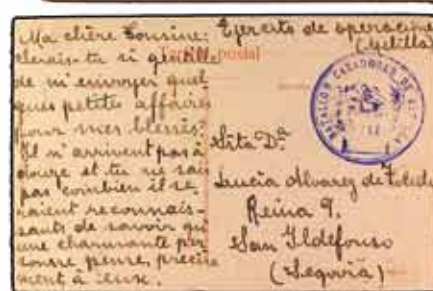 Ma chère Cousine:
serais-tu si gentille
de m'envoyer quel-
ques petites affaires
pour mes blessés.
Il n'arrivent pas à
douze et tu ne sais
pas combien ils se
raient reconnais-
sants de savoir qu'
une charmante per
sonne pense, précisé
ment à eux.
Tarjeta postal
Ejercito de operaciones
(Melilla)
BATALLON CAZADORES DE
Srta Dª
Lucia Alvarez de Toledo
Reina 9.
San Ildefonso
(Segovia)